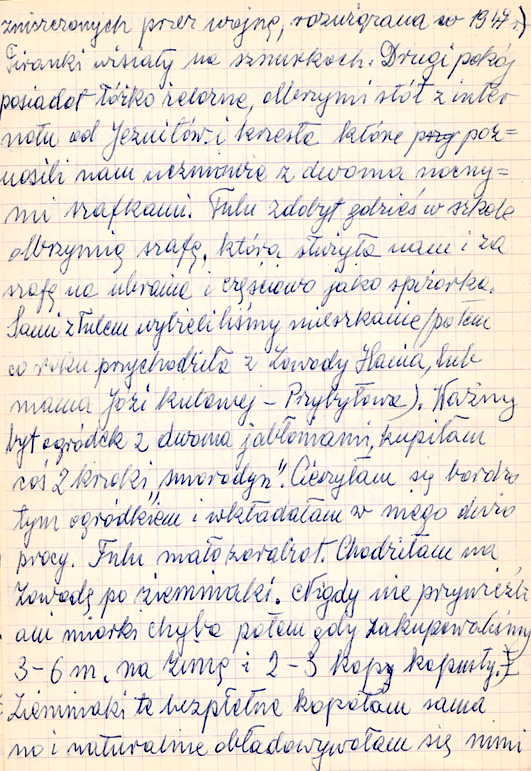 zniszczonych przez wojnę, rozwiązana w 1947 r)
Firanki wisiały na sznurkach. Drugi pokój
posiadał łóżko żelazne, olbrzymi stół z inter
natu od Jezuitów i krzesła które poz=
nosili nam uczniowie z dwoma nocny=
mi szafkami. Tulu zdobył gdzieś w szkole
olbrzymią szafę, która służyła nam i za
szafę na ubrania i częściowo jako spiżarka.
Sami z Tulem wybieliliśmy mieszkanie/potem
co roku przychodziła z Zawady Hania, lub
mama Józi Kutowej - Przybyłowa). Ważny
był ogródek z dwoma jabłoniami, kupiłam
coś 2 krzaki „smorodyn". Cieszyłam się bardzo
tym ogródkiem i wkładałam w niego dużo
pracy. Tulu mało zarabiał. Chodziłam na
Zawadę po ziemniaki. Nigdy nie przywieźli
ani miarki chyba potem gdy zakupowaliśmy
3-6 m. na zimę i 2-3 kopy kapusty.
Ziemniaki te bezpłatne kopałam sama
no i naturalnie obładowywałam się nimi